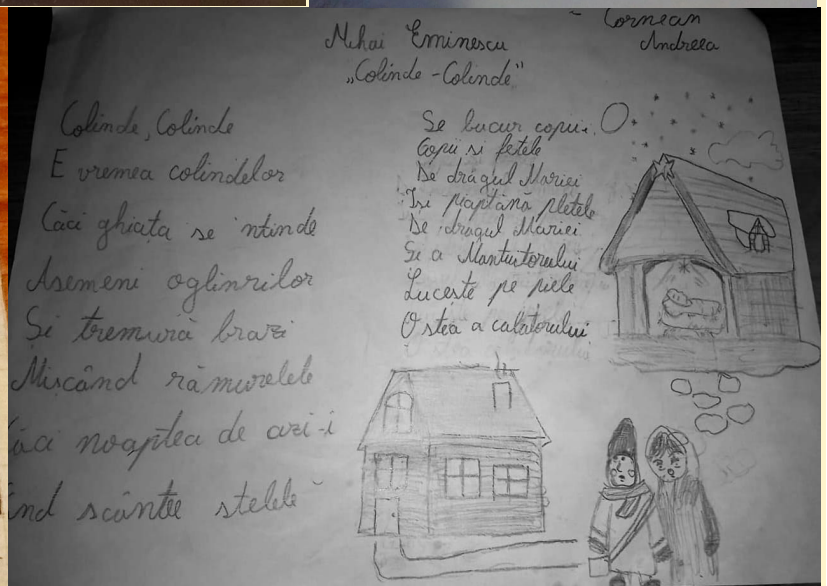 Cornean
Andreea
Mihai Eminescu
„Colinde - Colinde"
Colinde, Colinde
E vremea colindelor
Căci ghiața se 'ntinde
Asemeni oglinrilor
Și tremură brazi
Mișcând rămurelele
ăci noaptea de azi-i
ând scântee stelele
Se bucur copii.
Copii si fetele
De dragul Mariei
Își piaptănă pletele
De dragul Mariei
Si a Mantuitorului
Lucește pe piele
O stea a calatorului